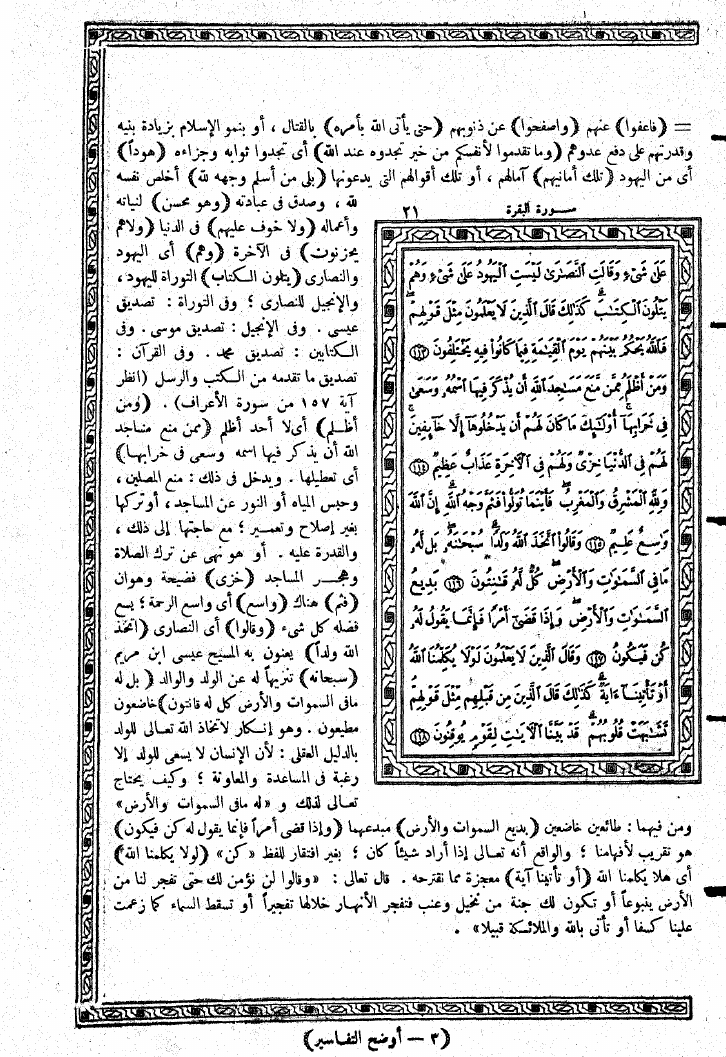 = (فاعفوا) عنهم (واصفحوا) عن ذنوبهم (حتى يأتى الله بأمره) بالقتال ، أو بنمو الإسلام بزيادة بنيه
وقدرتهم على دفع عدوهم (وما تقدموا لأنفسكم من خير تجدوه عند الله) أى تجدوا ثوابه وجزاءه (هوداً)
أى من اليهود (تلك أمانيهم) آمالهم ، أو تلك أقوالهم التى يدعونها (بلى من أسلم وجهه لله) أخلص نفسه
لله ، وصدق فى عبادته (وهو محسن) لنياته
وأعماله (ولا خوف عليهم) فى الدنيا (ولا هم
يحزنون) فى الآخرة (وهم) أى اليهود
والنصارى (يتلون الكتاب) التوراة لليهود ،
والإنجيل للنصارى ؛ وفى التوراة : تصديق
عيسى . وفى الإنجيل : تصديق موسى . وفى
الكتابين : تصديق محمد . وفى القرآن :
تصديق ما تقدمه من الكتب والرسل (انظر
آية ١٥٧ من سورة الأعراف) . (ومن
أظلم) أى لا أحد أظلم (ممن منع مساجد
الله أن يذكر فيها اسمه وسعى فى خرابها)
أى تعطيلها . ويدخل فى ذلك : منع المصلين ،
وحبس المياه أو النور عن المساجد ، أو تركها
بغير إصلاح وتعمير ؛ مع حاجتها إلى ذلك ،
والقدرة عليه . أو هو نهى عن ترك الصلاة
وهجر المساجد (خزى) فضيحة وهوان
(فثم) هناك (واسع) أى واسع الرحمة ؛ يسع
فضله كل شىء (وقالوا) أى النصارى (اتخذ
الله ولداً) يعنون به المسيح عيسى ابن مريم
(سبحانه) تنزيهاً له عن الولد والوالد (بل له
مافى السموات والأرض كل له قانتون) خاضعون
مطيعون . وهو إنكار لاتخاذ الله تعالى للولد
بالدليل العقلى : لأن الإنسان لا يسعى للولد إلا
رغبة فى المساعدة والمعاونة ؛ وكيف يحتاج
تعالى لذلك و «له مافى السموات والأرض»
سورة البقرة ٢١
عَلَىٰ شَىْءٍ وَقَالَتِ ٱلنَّصَـٰرَىٰ لَيْسَتِ ٱلْيَهُودُ عَلَىٰ شَىْءٍ وَهُمْ
يَتْلُونَ ٱلْكِتَـٰبَ ۗ كَذَٰلِكَ قَالَ ٱلَّذِينَ لَا يَعْلَمُونَ مِثْلَ قَوْلِهِمْ ۚ
فَٱللَّهُ يَحْكُمُ بَيْنَهُمْ يَوْمَ ٱلْقِيَـٰمَةِ فِيمَا كَانُوا۟ فِيهِ يَخْتَلِفُونَ ١١٣
وَمَنْ أَظْلَمُ مِمَّن مَّنَعَ مَسَـٰجِدَ ٱللَّهِ أَن يُذْكَرَ فِيهَا ٱسْمُهُۥ وَسَعَىٰ
فِى خَرَابِهَآ ۚ أُو۟لَـٰٓئِكَ مَا كَانَ لَهُمْ أَن يَدْخُلُوهَآ إِلَّا خَآئِفِينَ ۚ
لَهُمْ فِى ٱلدُّنْيَا خِزْىٌ وَلَهُمْ فِى ٱلْـَٔاخِرَةِ عَذَابٌ عَظِيمٌ ١١٤
وَلِلَّهِ ٱلْمَشْرِقُ وَٱلْمَغْرِبُ ۚ فَأَيْنَمَا تُوَلُّوا۟ فَثَمَّ وَجْهُ ٱللَّهِ ۚ إِنَّ ٱللَّهَ
وَٰسِعٌ عَلِيمٌ ١١٥ وَقَالُوا۟ ٱتَّخَذَ ٱللَّهُ وَلَدًا ۗ سُبْحَـٰنَهُۥ ۖ بَل لَّهُۥ
مَا فِى ٱلسَّمَـٰوَٰتِ وَٱلْأَرْضِ ۖ كُلٌّ لَّهُۥ قَـٰنِتُونَ ١١٦ بَدِيعُ
ٱلسَّمَـٰوَٰتِ وَٱلْأَرْضِ ۖ وَإِذَا قَضَىٰٓ أَمْرًا فَإِنَّمَا يَقُولُ لَهُۥ
كُن فَيَكُونُ ١١٧ وَقَالَ ٱلَّذِينَ لَا يَعْلَمُونَ لَوْلَا يُكَلِّمُنَا ٱللَّهُ
أَوْ تَأْتِينَآ ءَايَةٌ ۗ كَذَٰلِكَ قَالَ ٱلَّذِينَ مِن قَبْلِهِم مِّثْلَ قَوْلِهِمْ ۘ
تَشَـٰبَهَتْ قُلُوبُهُمْ ۗ قَدْ بَيَّنَّا ٱلْـَٔايَـٰتِ لِقَوْمٍ يُوقِنُونَ ١١٨
ومن فيهما : طائعين خاضعين (بديع السموات والأرض) مبدعهما (وإذا قضى أمراً فإنما يقول له كن فيكون)
هو تقريب لأفهامنا ؛ والواقع أنه تعالى إذا أراد شيئاً كان ؛ بغير افتقار للفظ «كن» (لولا يكلمنا الله)
أى هلا يكلمنا الله (أو تأتينا آية) معجزة مما نقترحه . قال تعالى : «وقالوا لن نؤمن لك حتى تفجر لنا من
الأرض ينبوعاً أو تكون لك جنة من نخيل وعنب فتفجر الأنهار خلالها تفجيراً أو تسقط السماء كما زعمت
علينا كسفا أو تأتى بالله والملائكة قبيلا» .
(٣ — أوضح التفاسير)